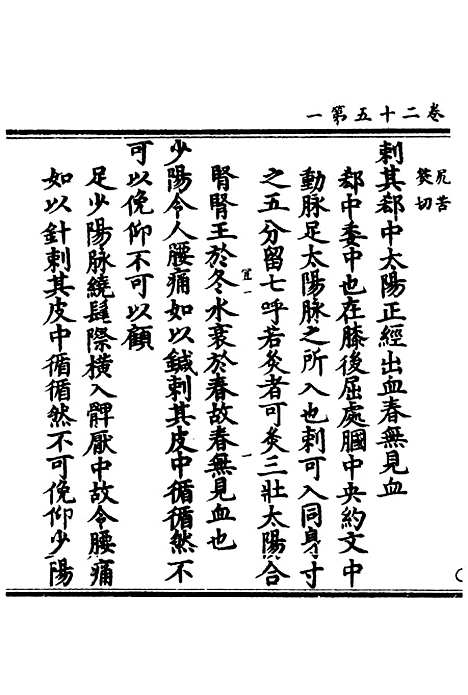 卷二十五第一
尻苦
侯切
刺其郄中太陽正經出血春無見血
郄中委中也在膝後屈處膕中央約文中
動脉足太陽脉之所入也刺可入同身寸
之五分留七呼若灸者可灸三壯太陽合
腎腎王於冬水衰於春故春無見血也
宜一
少陽令人腰痛如以鍼刺其皮中循循然不
可以俛仰不可以顧
足少陽脉繞髦際橫入髀厭中故令腰痛
如以針刺其皮中循循然不可俛仰少陽